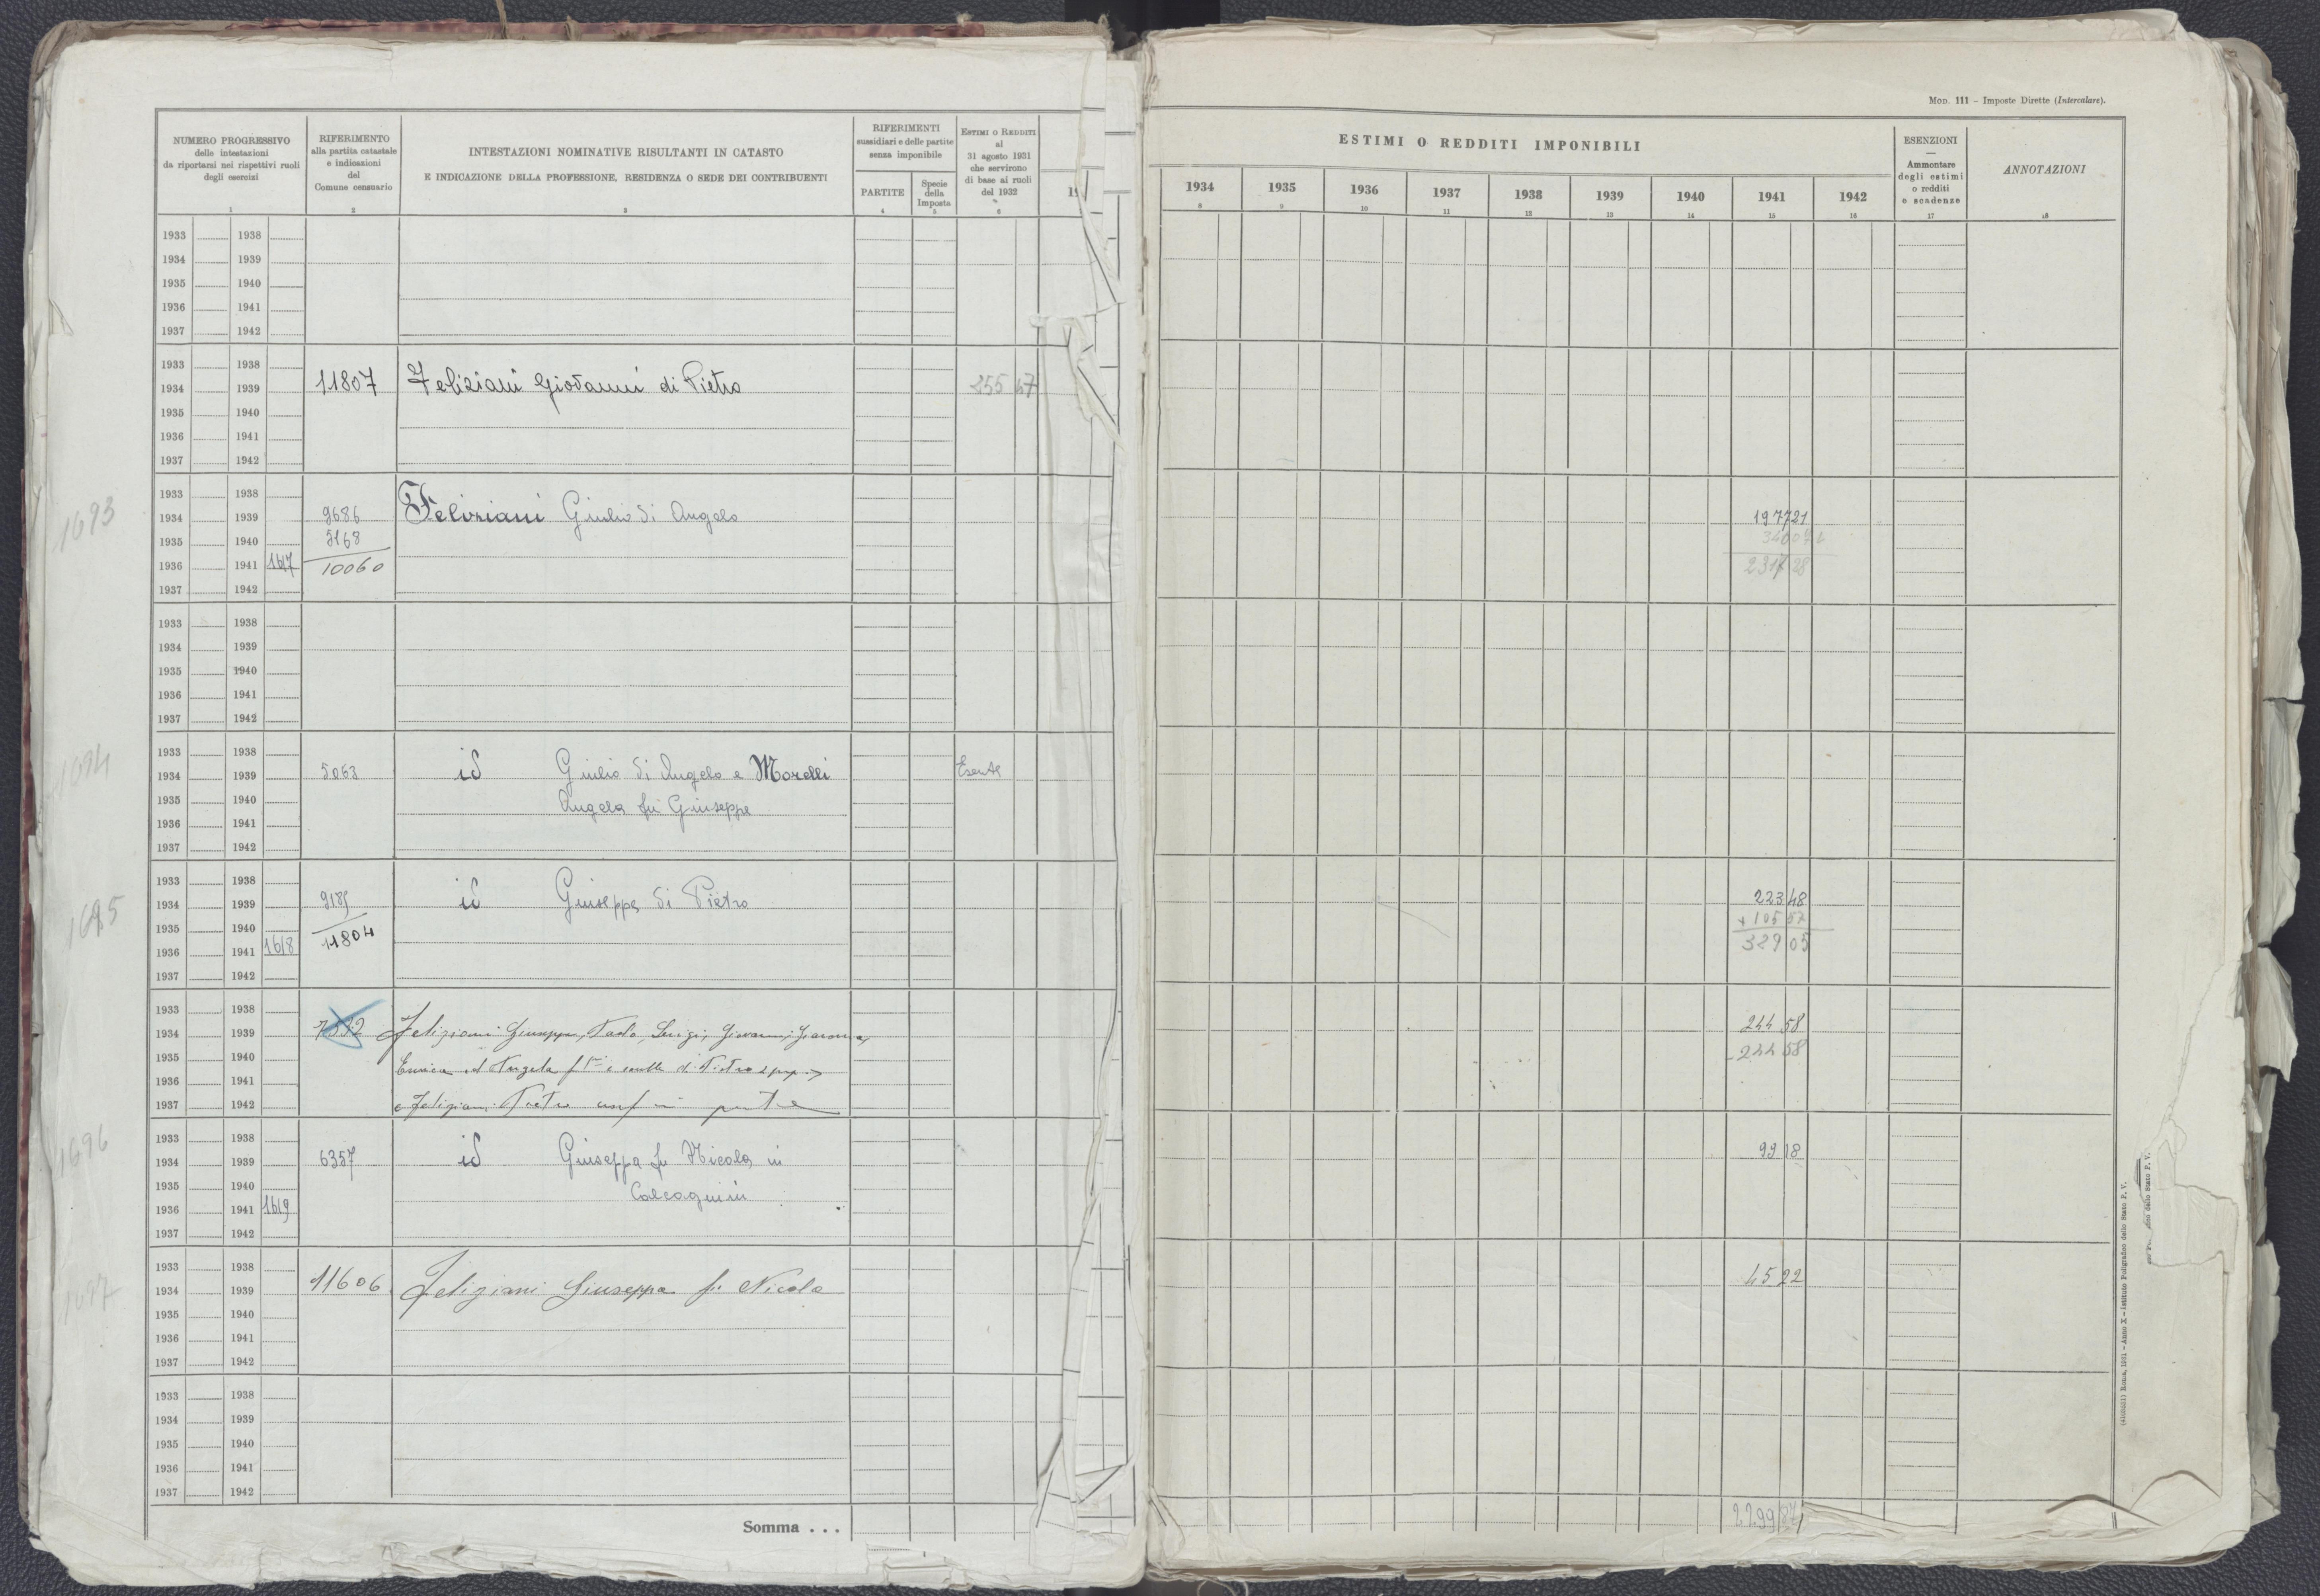 Mod. 111 – Imposte Dirette (Intercalare).
NUMERO PROGRESSIVO
delle intestazioni
da riportarsi nei rispettivi ruoli
degli esercizi
1
RIFERIMENTO
alla partita catastale
e indicazioni
del
Comune censuario
2
INTESTAZIONI NOMINATIVE RISULTANTI IN CATASTO
E INDICAZIONE DELLA PROFESSIONE, RESIDENZA O SEDE DEI CONTRIBUENTI
3
RIFERIMENTI
sussidiari e delle partite
senza imponibile
PARTITE
4
Specie
della
Imposta
5
Estimi o Redditi
al
31 agosto 1931
che servirono
di base ai ruoli
del 1932
6
ESTIMI O REDDITI IMPONIBILI
1934 1935 1936 1937 1938 1939 1940 1941 1942
8 9 10 11 12 13 14 15 16
ESENZIONI
Ammontare
degli estimi
o redditi
e scadenze
17
ANNOTAZIONI
18
1933 1938
1934 1939
1935 1940
1936 1941
1937 1942
1933 1938
1934 1939 11807 Feliziani Giovanni di Pietro
1935 1940
1936 1941
1937 1942
1693
1933 1938
1934 1939 9686 Feliziani Giulio di Angelo 1977 21
1935 1940 5168
1936 1941 1617 10060
1937 1942
1933 1938
1934 1939
1935 1940
1936 1941
1937 1942
1694
1933 1938
1934 1939 5063 id Giulio di Angelo e Morelli Esente
1935 1940 Angela fu Giuseppe
1936 1941
1937 1942
1695
1933 1938
1934 1939 9185 id Giuseppe di Pietro 223 48
1935 1940 + 105 57
1936 1941 1618 11804 329 05
1937 1942
1933 1938
1934 1939 Feliziani Giuseppe, Paolo, Luigi, Giovanni, 244 58
1935 1940 Enrica ed Angela di Pietro - 244 58
1936 1941
1937 1942 e Feliziani Pietro
1696
1933 1938
1934 1939 6357 id Giuseppa fu Nicola in 99 18
1935 1940 Calcagnini
1936 1941 1619
1937 1942
1697
1933 1938
1934 1939 11606 Feliziani Giuseppa fu Nicola 45 22
1935 1940
1936 1941
1937 1942
1933 1938
1934 1939
1935 1940
1936 1941
1937 1942
Somma . . . 2299 87
(4109551) Roma, 1931 – Anno X – Istituto Poligrafico dello Stato P. V.
dello Stato P. V.